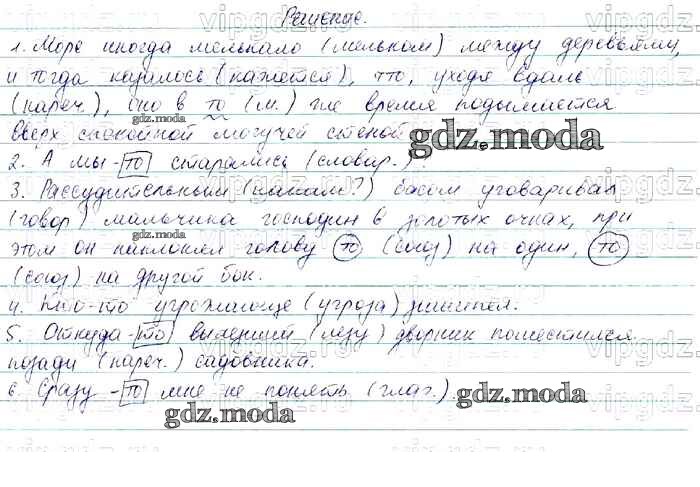 Решение.
1. Море иногда мелькало (мельком) между деревьями,
и тогда казалось (кажется), что, уходя вдаль
(нареч.), оно в то (м.) же время подымается
вверх спокойной могучей стеной
gdz.moda
2. А мы-то старались (словар.).
3. Рассудительным (каким?) басом уговаривал
(говор) мальчика господин в золотых очках, при
этом он наклонял голову то (союз) на один, то
(союз) на другой бок.
4. Кто-то угрожающе (угроза) зашипел.
5. Откуда-то вылезший (лезу) дворник поместился
позади (нареч.) садовника.
6. Сразу-то мне не понять (глаг.).
gdz.moda
gdz.moda